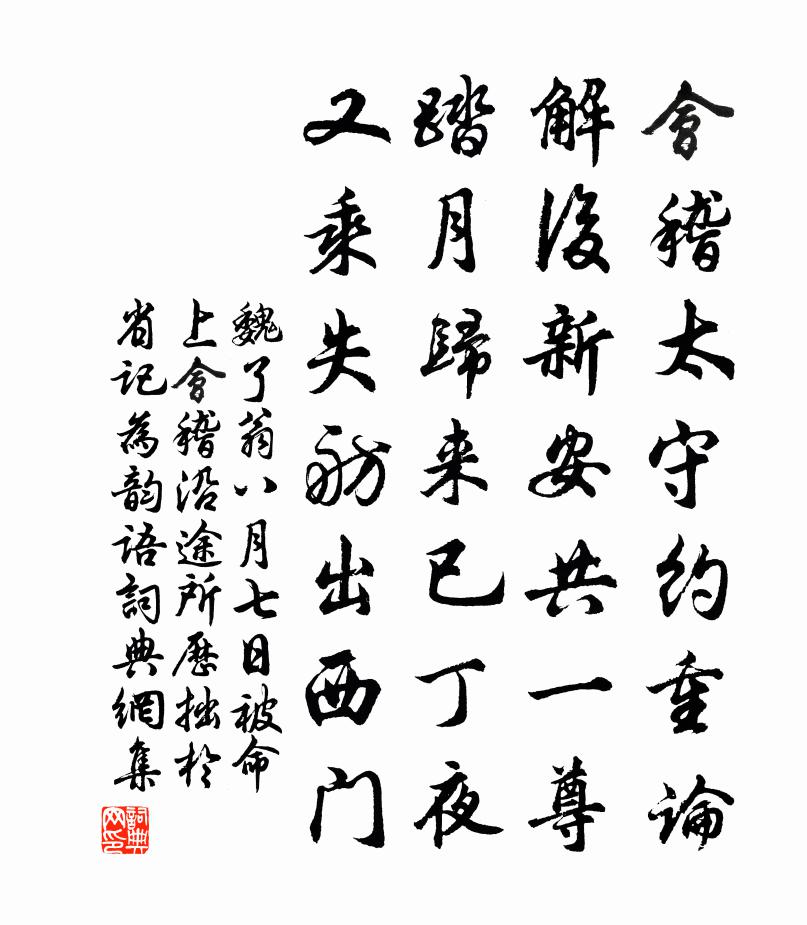 會稽太守約重論
解後新安共一尊
踏月歸来已丁夜
又乘失舫出西門
魏了翁八月七日被命
上會稽沿途所歷拙於
省記為韵語詞典網集
詞典网印